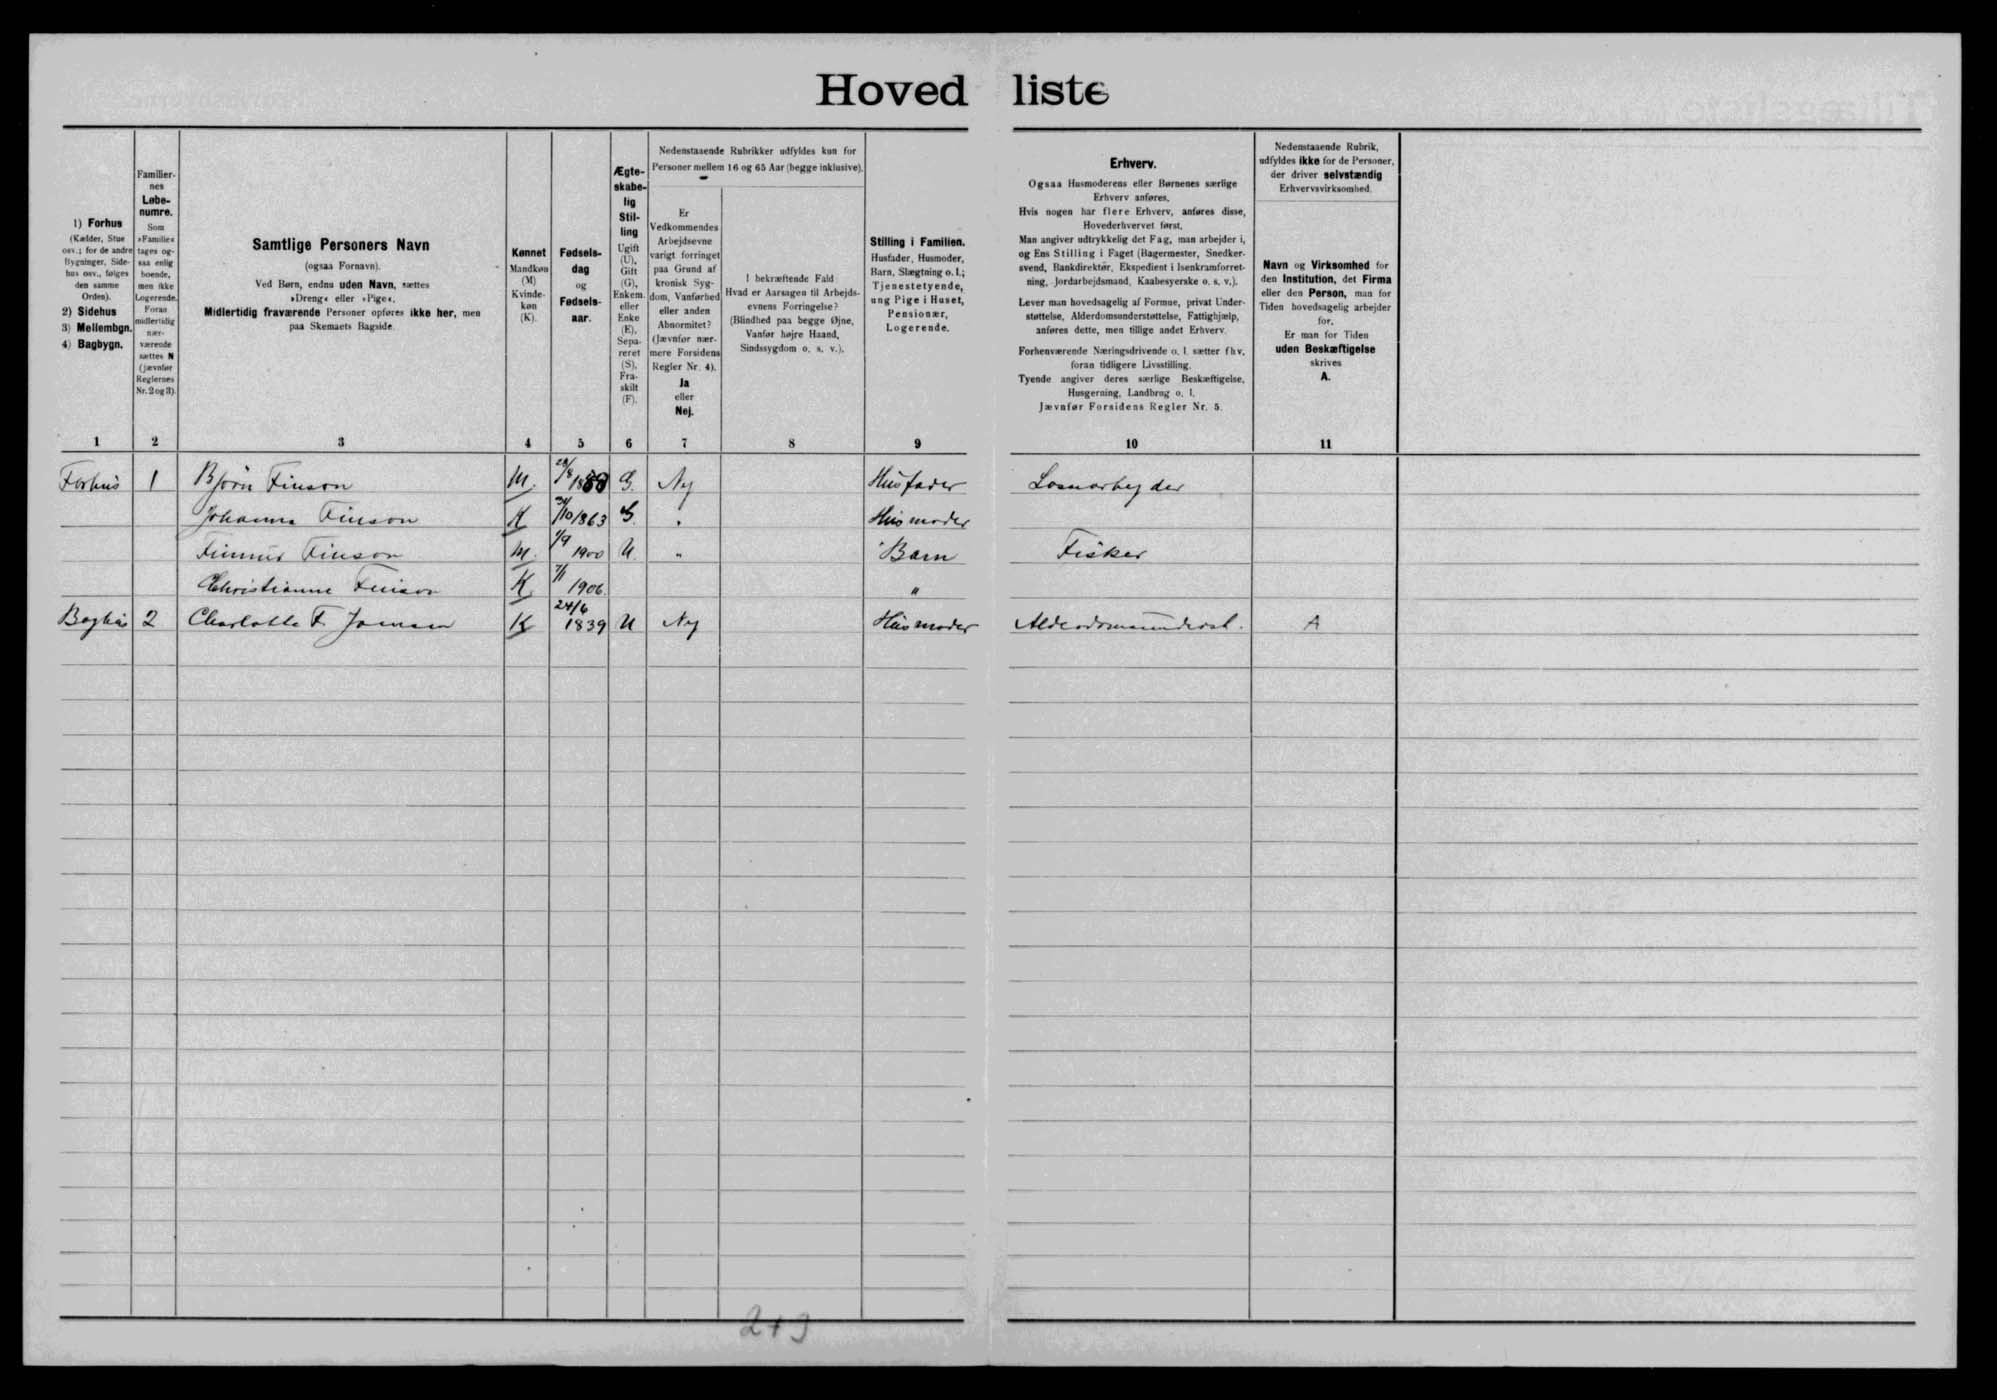 Hovedliste
1) Forhus
(Kælder, Stue
osv.; for de andre
Bygninger, Side-
hus osv., følges
den samme
Orden).
2) Sidehus
3) Mellembgn.
4) Bagbygn.
Familier-
nes
Løbe-
numre.
Som
»Familie«
tages og-
saa enlig
boende,
men ikke
Logerende.
Foran
midlertidig
nær-
værende
sættes N
(jævnfør
Reglernes
Nr. 2 og 3).
Samtlige Personers Navn
(ogsaa Fornavn).
Ved Børn, endnu uden Navn, sættes
»Dreng« eller »Pige«.
Midlertidig fraværende Personer opføres ikke her, men
paa Skemaets Bagside.
Kønnet
Mandkøn
(M)
Kvinde-
køn
(K).
Fødsels-
dag
og
Fødsels-
aar.
Ægte-
skabe-
lig
Stil-
ling
Ugift
(U),
Gift
(G),
Enkem.
eller
Enke
(E),
Sepa-
reret
(S),
Fra-
skilt
(F).
Nedenstaaende Rubrikker udfyldes kun for
Personer mellem 16 og 65 Aar (begge inklusive).
Er
Vedkommendes
Arbejdsevne
varigt forringet
paa Grund af
kronisk Syg-
dom, Vanførhed
eller anden
Abnormitet?
(Jævnfør nær-
mere Forsidens
Regler Nr. 4).
Ja
eller
Nej.
I bekræftende Fald:
Hvad er Aarsagen til Arbejds-
evnens Forringelse?
(Blindhed paa begge Øjne,
Vanfør højre Haand,
Sindssygdom o. s. v.).
Stilling i Familien.
Husfader, Husmoder,
Barn, Slægtning o. l.;
Tjenestetyende,
ung Pige i Huset,
Pensionær,
Logerende.
Erhverv.
Ogsaa Husmoderens eller Børnenes særlige
Erhverv anføres.
Hvis nogen har flere Erhverv, anføres disse,
Hovederhvervet først.
Man angiver udtrykkelig det Fag, man arbejder i,
og Ens Stilling i Faget (Bagermester, Snedker-
svend, Bankdirektør, Ekspedient i Isenkramforret-
ning, Jordarbejdsmand, Kaabesyerske o. s. v.).
Lever man hovedsagelig af Formue, privat Under-
støttelse, Alderdomsunderstøttelse, Fattighjælp,
anføres dette, men tillige andet Erhverv.
Forhenværende Næringsdrivende o. l. sætter fhv.
foran tidligere Livsstilling.
Tyende angiver deres særlige Beskæftigelse,
Husgerning, Landbrug o. l.
Jævnfør Forsidens Regler Nr. 5.
Nedenstaaende Rubrik,
udfyldes ikke for de Personer,
der driver selvstændig
Erhvervsvirksomhed.
Navn og Virksomhed for
den Institution, det Firma
eller den Person, man for
Tiden hovedsagelig arbejder
for.
Er man for Tiden
uden Beskæftigelse
skrives
A.
1 2 3 4 5 6 7 8 9 10 11
Forhus 1 Bjørn Finson M. G. Nej Husfader Løsarbejder
Johanna Finson K 1863 G. " Husmoder
Finnur Finson M. 1/9 1900 U. " Barn Fisker
Christianne Finson K. 1906 "
Baghus 2 Charlotte F. Jensen K 24/6 1839 U Nej Husmoder Alderdomsunderst. A
2+3